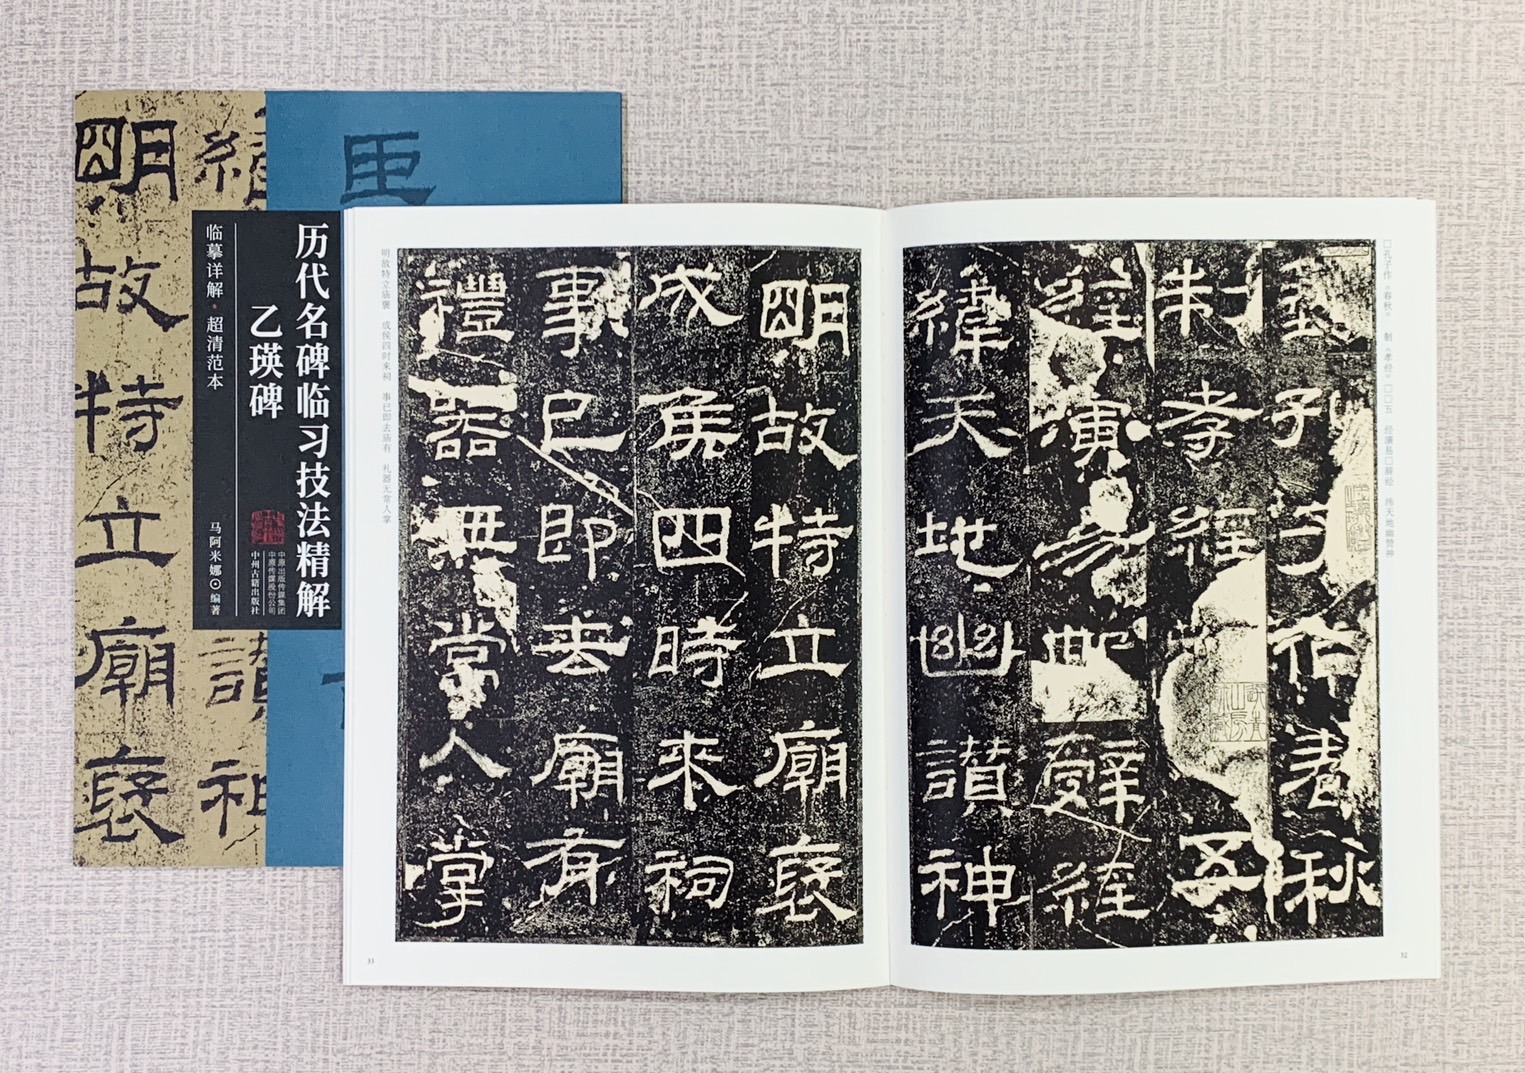 历代名碑临习技法精解
乙瑛碑
临摹详解·超清范本
马阿米娜⊙编著
中原出版传媒集团
中原传媒股份公司
中州古籍出版社
緯
讃神
明故特立廟褒
□孔子作《春秋》 制《孝经》 □□五 经演易□辞经 纬天地幽赞神
子作春秋
制孝經五
經演易辭經
緯天地幽讃神
32
明故特立廟褒
成侯四時來祠
事已即去廟有
禮器無常人掌
明故特立庙褒 成侯四时来祠 事已即去庙有 礼器无常人掌
33